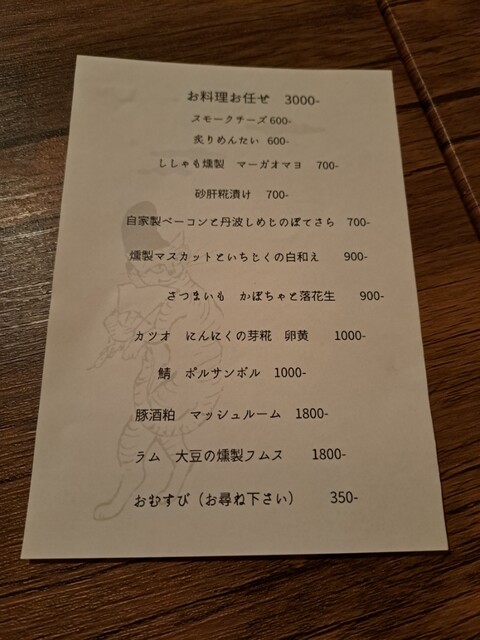 お料理お任せ 3000-
スモークチーズ600-
炙りめんたい 600-
ししゃも燻製 マーガオマヨ 700-
砂肝糀漬け 700-
自家製ベーコンと丹波しめじのぽてさら 700-
燻製マスカットといちじくの白和え 900-
さつまいも かぼちゃと落花生 900-
カツオ にんにくの芽糀 卵黄 1000-
鯖 ポルサンボル 1000-
豚酒粕 マッシュルーム 1800-
ラム 大豆の燻製フムス 1800-
おむすび（お尋ね下さい） 350-